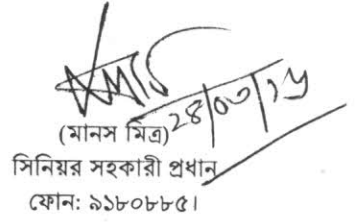 ২৪/০৩/১৬
(মানস মিত্র)
সিনিয়র সহকারী প্রধান
ফোন: ৯১৮০৮৮৫।